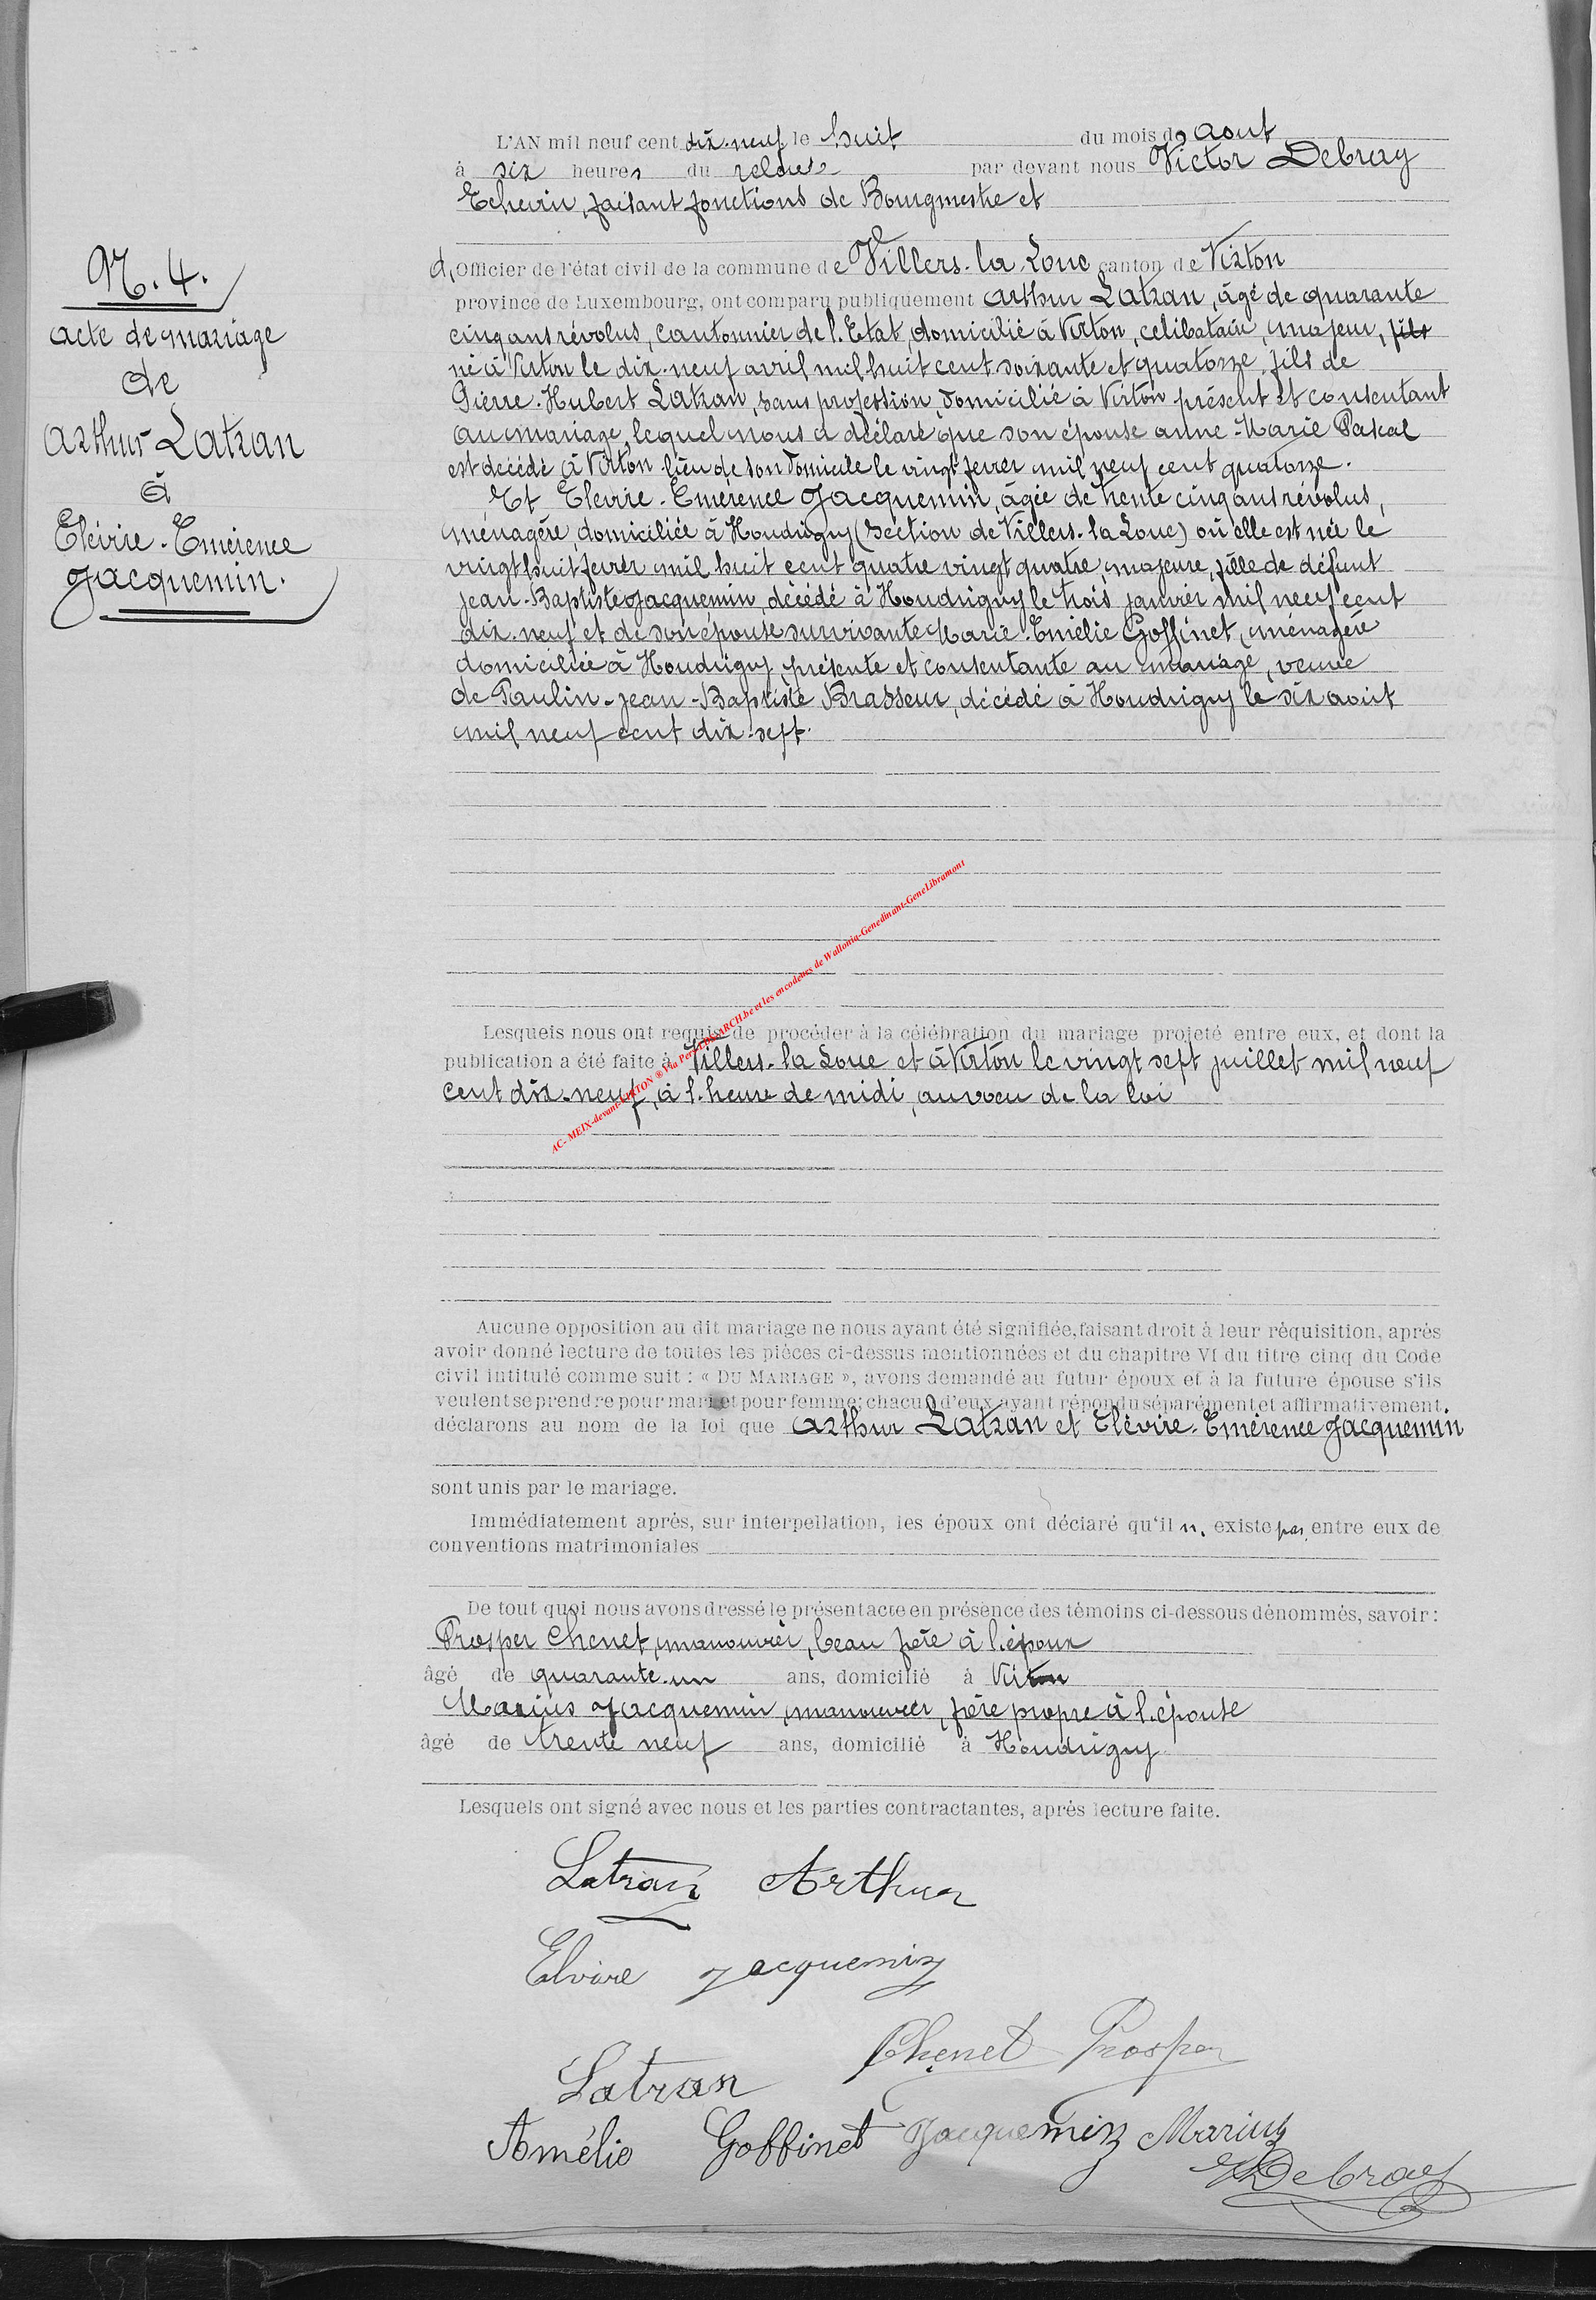 L'AN mil neuf cent dix-neuf le huit du mois de Aout
à six heures du relevée par devant nous Victor Debray
Echevin, faisant fonctions de Bourgmestre et
d'Officier de l'état civil de la commune de Villers-la-Loue canton de Virton
province de Luxembourg, ont comparu publiquement Arthur Latran, âgé de quarante
cinq ans révolus, cantonnier de l'Etat, domicilié à Virton, célibataire, majeur, fils
né à Virton le dix-neuf avril mil huit cent soixante et quatorze, fils de
Pierre-Hubert Latran, sans profession, domicilié à Virton présent et consentant
au mariage, lequel nous a déclaré que son épouse Anne-Marie Pascal
est décédé à Virton lieu de son domicile le vingt fevrer mil neuf cent quatorze.
Et Elévire-Emérence Jacquemin, âgée de trente cinq ans révolus,
ménagère, domiciliée à Houdrigny (section de Villers-la-Loue) où elle est née le
vingt huit fevrer mil huit cent quatre vingt quatre, majeure, fille de défunt
Jean-Baptiste Jacquemin, décédé à Houdrigny le trois janvier mil neuf cent
dix-neuf et de son épouse survivante Marie-Emélie Goffinet, ménagère
domiciliée à Houdrigny, présente et consentante au mariage, veuve
de Paulin-Jean-Baptiste Brasseur, décédé à Houdrigny le six août
mil neuf cent dix-sept.
N. 4.
Acte de mariage
de
Arthur Latran
à
Elévire-Emérence
Jacquemin.
AC- MEIX-devant-VIRTON ® Via Par ARCH.be et les encodeurs de Wallonia-Genedinant-GeneLibramont
Lesquels nous ont requis de procéder à la célébration du mariage projeté entre eux, et dont la
publication a été faite à Villers-la-Loue et à Virton le vingt sept juillet mil neuf
cent dix-neuf, à l'heure de midi, au voeu de la loi
Aucune opposition au dit mariage ne nous ayant été signifiée, faisant droit à leur réquisition, après
avoir donné lecture de toutes les pièces ci-dessus mentionnées et du chapitre VI du titre cinq du Code
civil intitulé comme suit : « DU MARIAGE », avons demandé au futur époux et à la future épouse s'ils
veulent se prendre pour mari et pour femme; chacun d'eux ayant répondu séparément et affirmativement,
déclarons au nom de la loi que Arthur Latran et Elévire-Emérence Jacquemin
sont unis par le mariage.
Immédiatement après, sur interpellation, les époux ont déclaré qu'il n' existe pas entre eux de
conventions matrimoniales
De tout quoi nous avons dressé le présent acte en présence des témoins ci-dessous dénommés, savoir :
Prosper Chenet, manouvrier, beau frère à l'époux
âgé de quarante-un ans, domicilié à Virton
Marius Jacquemin, manouvrier, frère propre à l'épouse
âgé de trente neuf ans, domicilié à Houdrigny
Lesquels ont signé avec nous et les parties contractantes, après lecture faite.
Latran Arthur
Elvire Jacquemin
Chenet Prosper
Latran
Amélie Goffinet Jacquemin Marius
V Debray